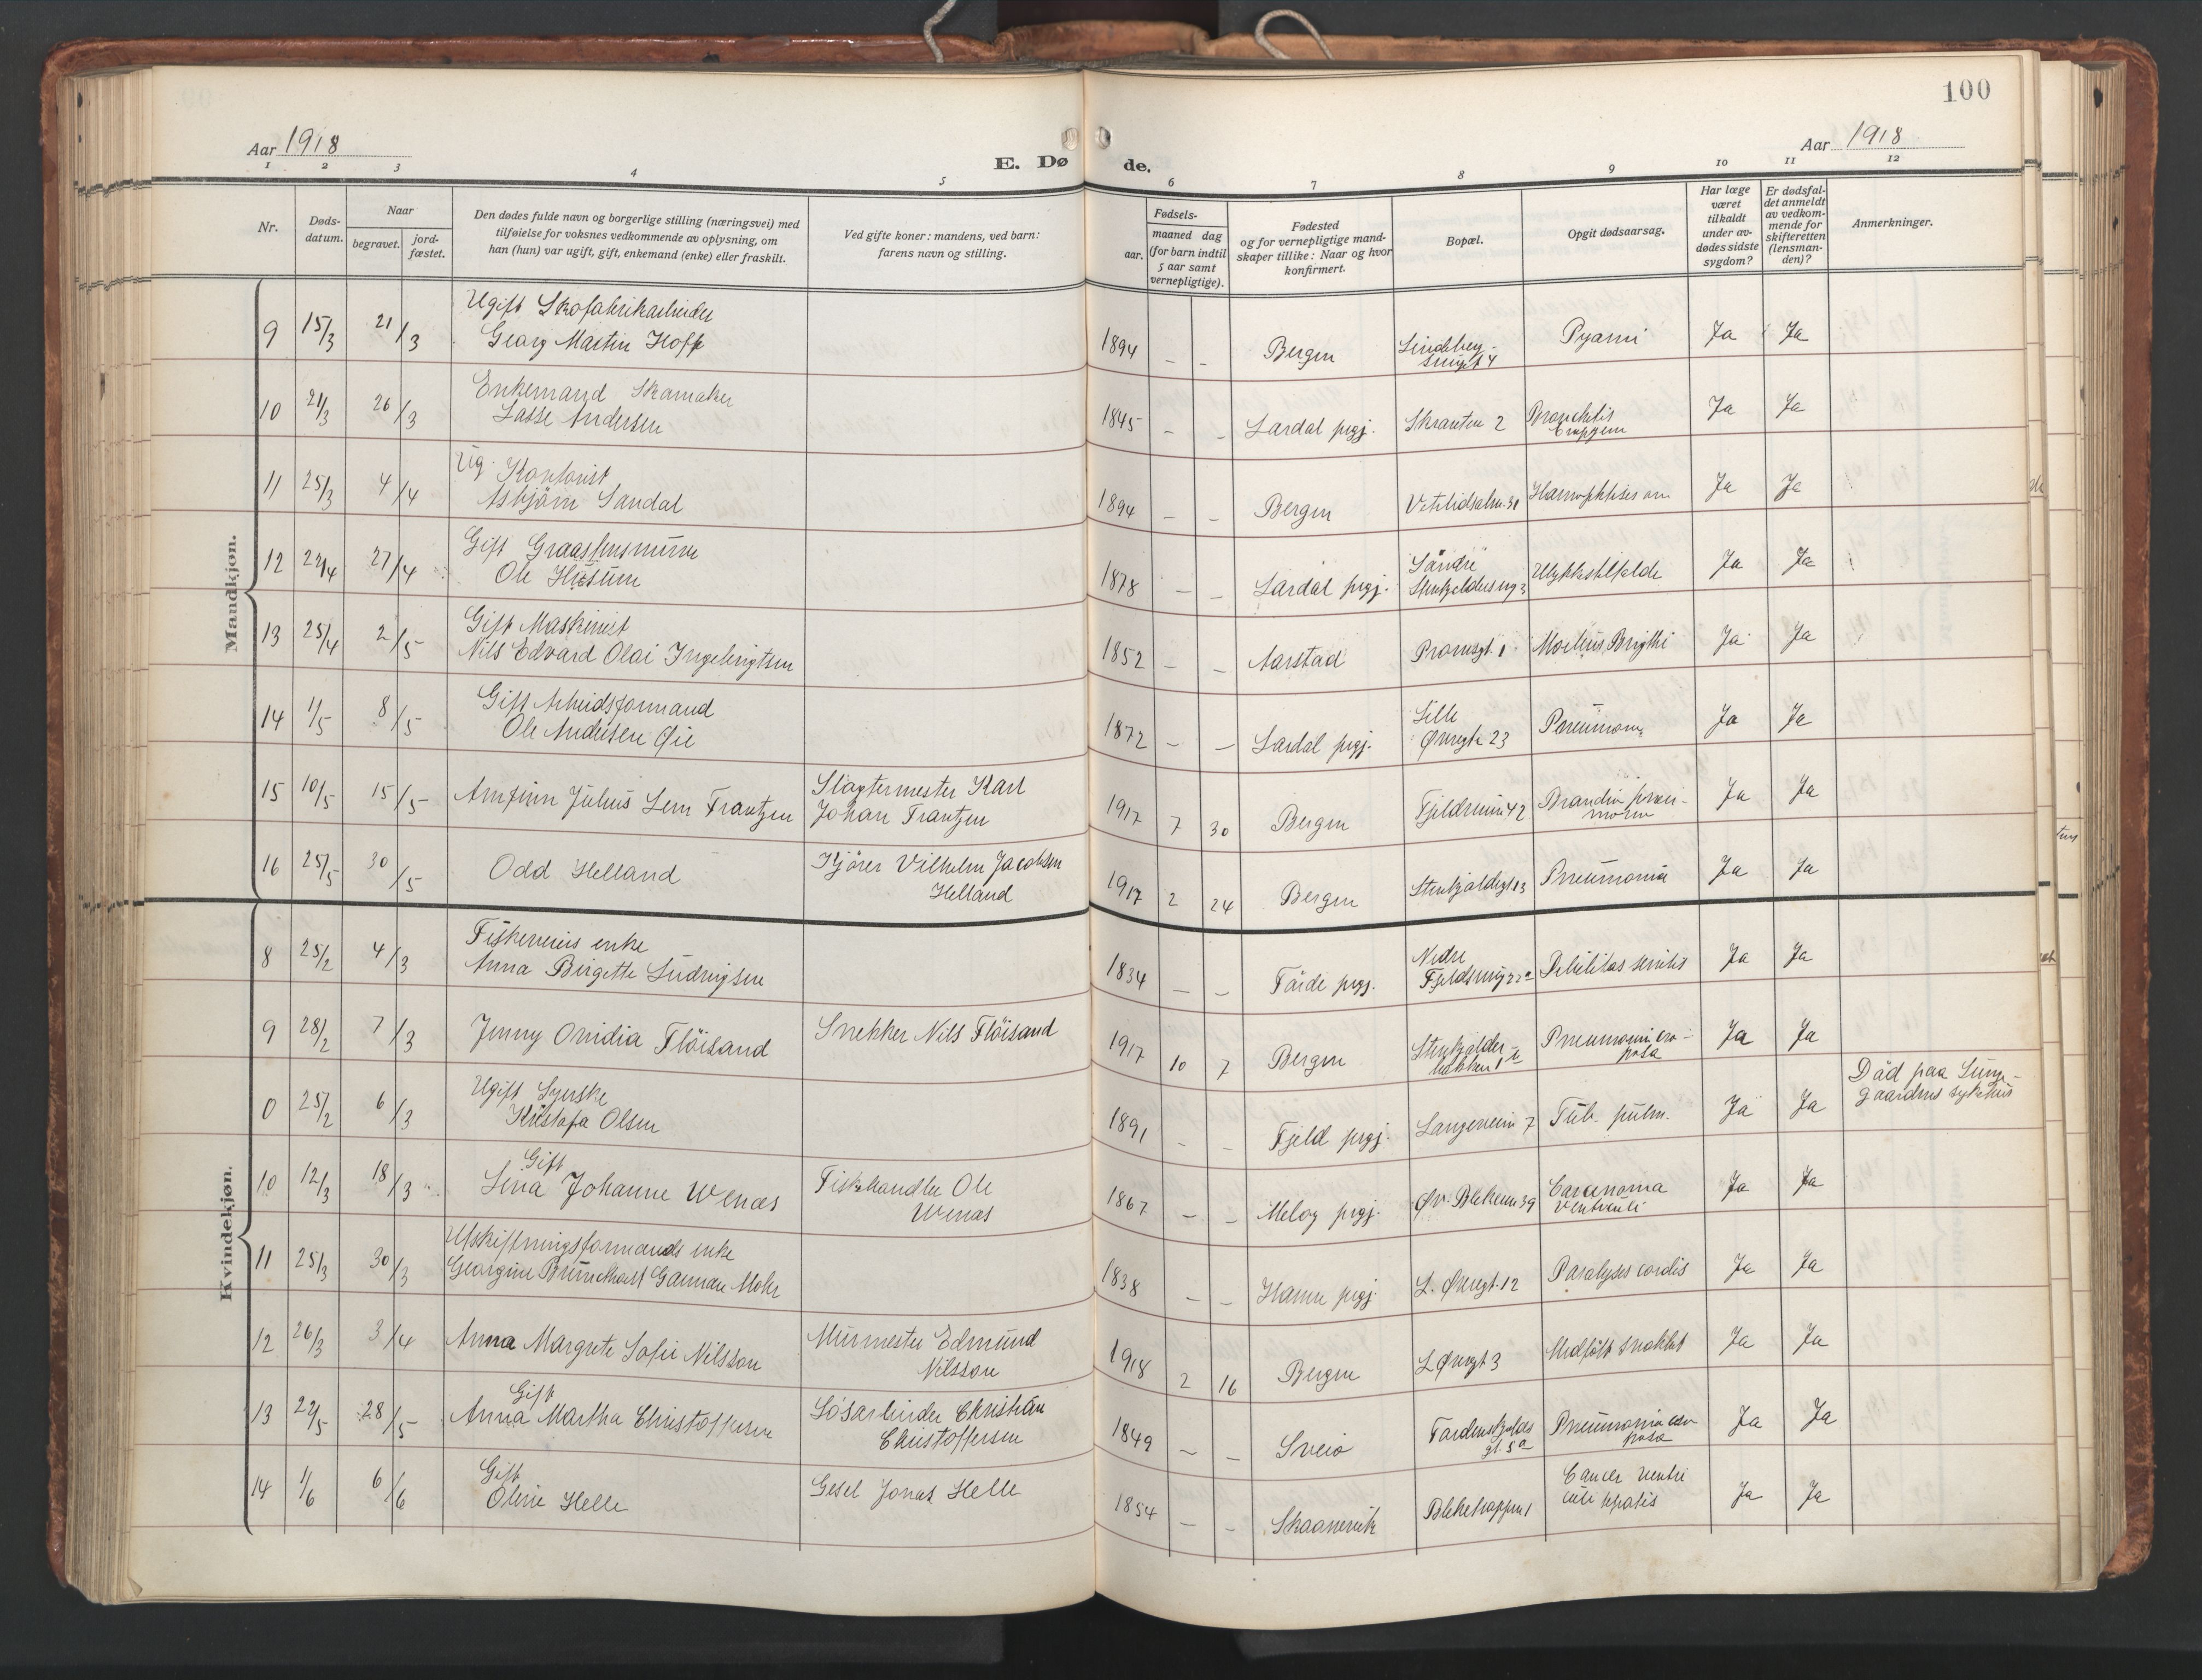 100
Aar 1918
E. Døde.
Aar 1918
1 2 3 4 5 6 7 8 9 10 11 12
Nr.
Døds-
datum.
Naar
begravet.
jord-
fæstet.
Den dødes fulde navn og borgerlige stilling (næringsvei) med
tilføielse for voksnes vedkommende av oplysning, om
han (hun) var ugift, gift, enkemand (enke) eller fraskilt.
Ved gifte koner: mandens, ved barn:
farens navn og stilling.
Fødsels-
aar.
maaned dag
(for barn indtil
5 aar samt
vernepligtige).
Fødested
og for vernepligtige mand-
skaper tillike: Naar og hvor
konfirmert.
Bopæl.
Opgit dødsaarsag.
Har læge
været
tilkaldt
under av-
dødes sidste
sygdom?
Er dødsfal-
det anmeldt
av vedkom-
mende for
skifteretten
(lensman-
den)?
Anmerkninger.
Mandkjøn.
9 15/3 21/3 Ugift Skofabrikarbeider
Georg Martin Hoff
1894 - - Bergen Ja Ja
10 21/3 26/3 Enkemand Skomaker
Lasse Andersen
1845 - - Lærdal prgj. Skranten 2 Ja Ja
11 25/3 4/4 Ug. Kontorist
Asbjörn Sandal
1894 - - Bergen Ja Ja
12 22/4 27/4 Gift Graastensmurer
Ole Husum
1878 - - Lærdal prgj. Söndre Ulykkestilfelde Ja Ja
13 25/4 2/5 Gift Maskinist
Nils Edvard Olai Ingebrigtsen
1852 - - Aarstad Morbus Brigthi Ja Ja
14 1/5 8/5 Gift Arbeidsformand
Ole Andersen Øie
1872 - - Lærdal prgj. Lille
Øvregt 23 Ja Ja
15 10/5 15/5 Arnfinn Julius Lem Frantzen Slagtermester Karl
Johan Frantzen
1917 7 30 Bergen Fjeldveien 42 Ja Ja
16 25/5 30/5 Odd Helland Kjörer Vilhelm Jacobsen
Helland
1917 2 24 Bergen Pneumonia Ja Ja
Kvindekjøn.
8 25/2 4/3 enke
Anna Birgette Ludvigsen
1834 - - Förde prgj. Nedre Debilitas senilis Ja Ja
9 28/2 7/3 Jenny Ovidia Flöisand Snekker Nils Flöisand
1917 10 7 Bergen Ja Ja
0 25/2 6/3 Ugift Syerske
Kristofa Olsen
1891 - - Fjeld prgj. Langeveien 7 Tub. pulm. Ja Ja Död paa Lunge-
gaardens sykehus
10 12/3 18/3 Gift
Lina Johanne Wenæs Fiskehandler Ole
Wenæs
1867 - - Meløy prgj. Øv. Blekevei 39 Carcinoma
Ventriculi Ja Ja
11 25/3 30/3 Utskiftningsformands enke
Georgine Mohr
1838 - - Hamre prgj. L. Øvregt. 12 Paralyses cordis Ja Ja
12 26/3 3/4 Anna Margrete Sofie Nilsson Murmester Edmund
Nilsson
1918 2 16 Bergen L Øvregt 3 Medfödt svakhet Ja Ja
13 22/5 28/5 Gift
Anna Martha Christoffersen Løsarbeider Christian
Christoffersen
1849 - - Sveio Tordenskjolds
gt. 5a Ja Ja
14 1/6 6/6 Gift
Oline Helle Gesel Jonas Helle
1854 - - Skaanevik Ja Ja